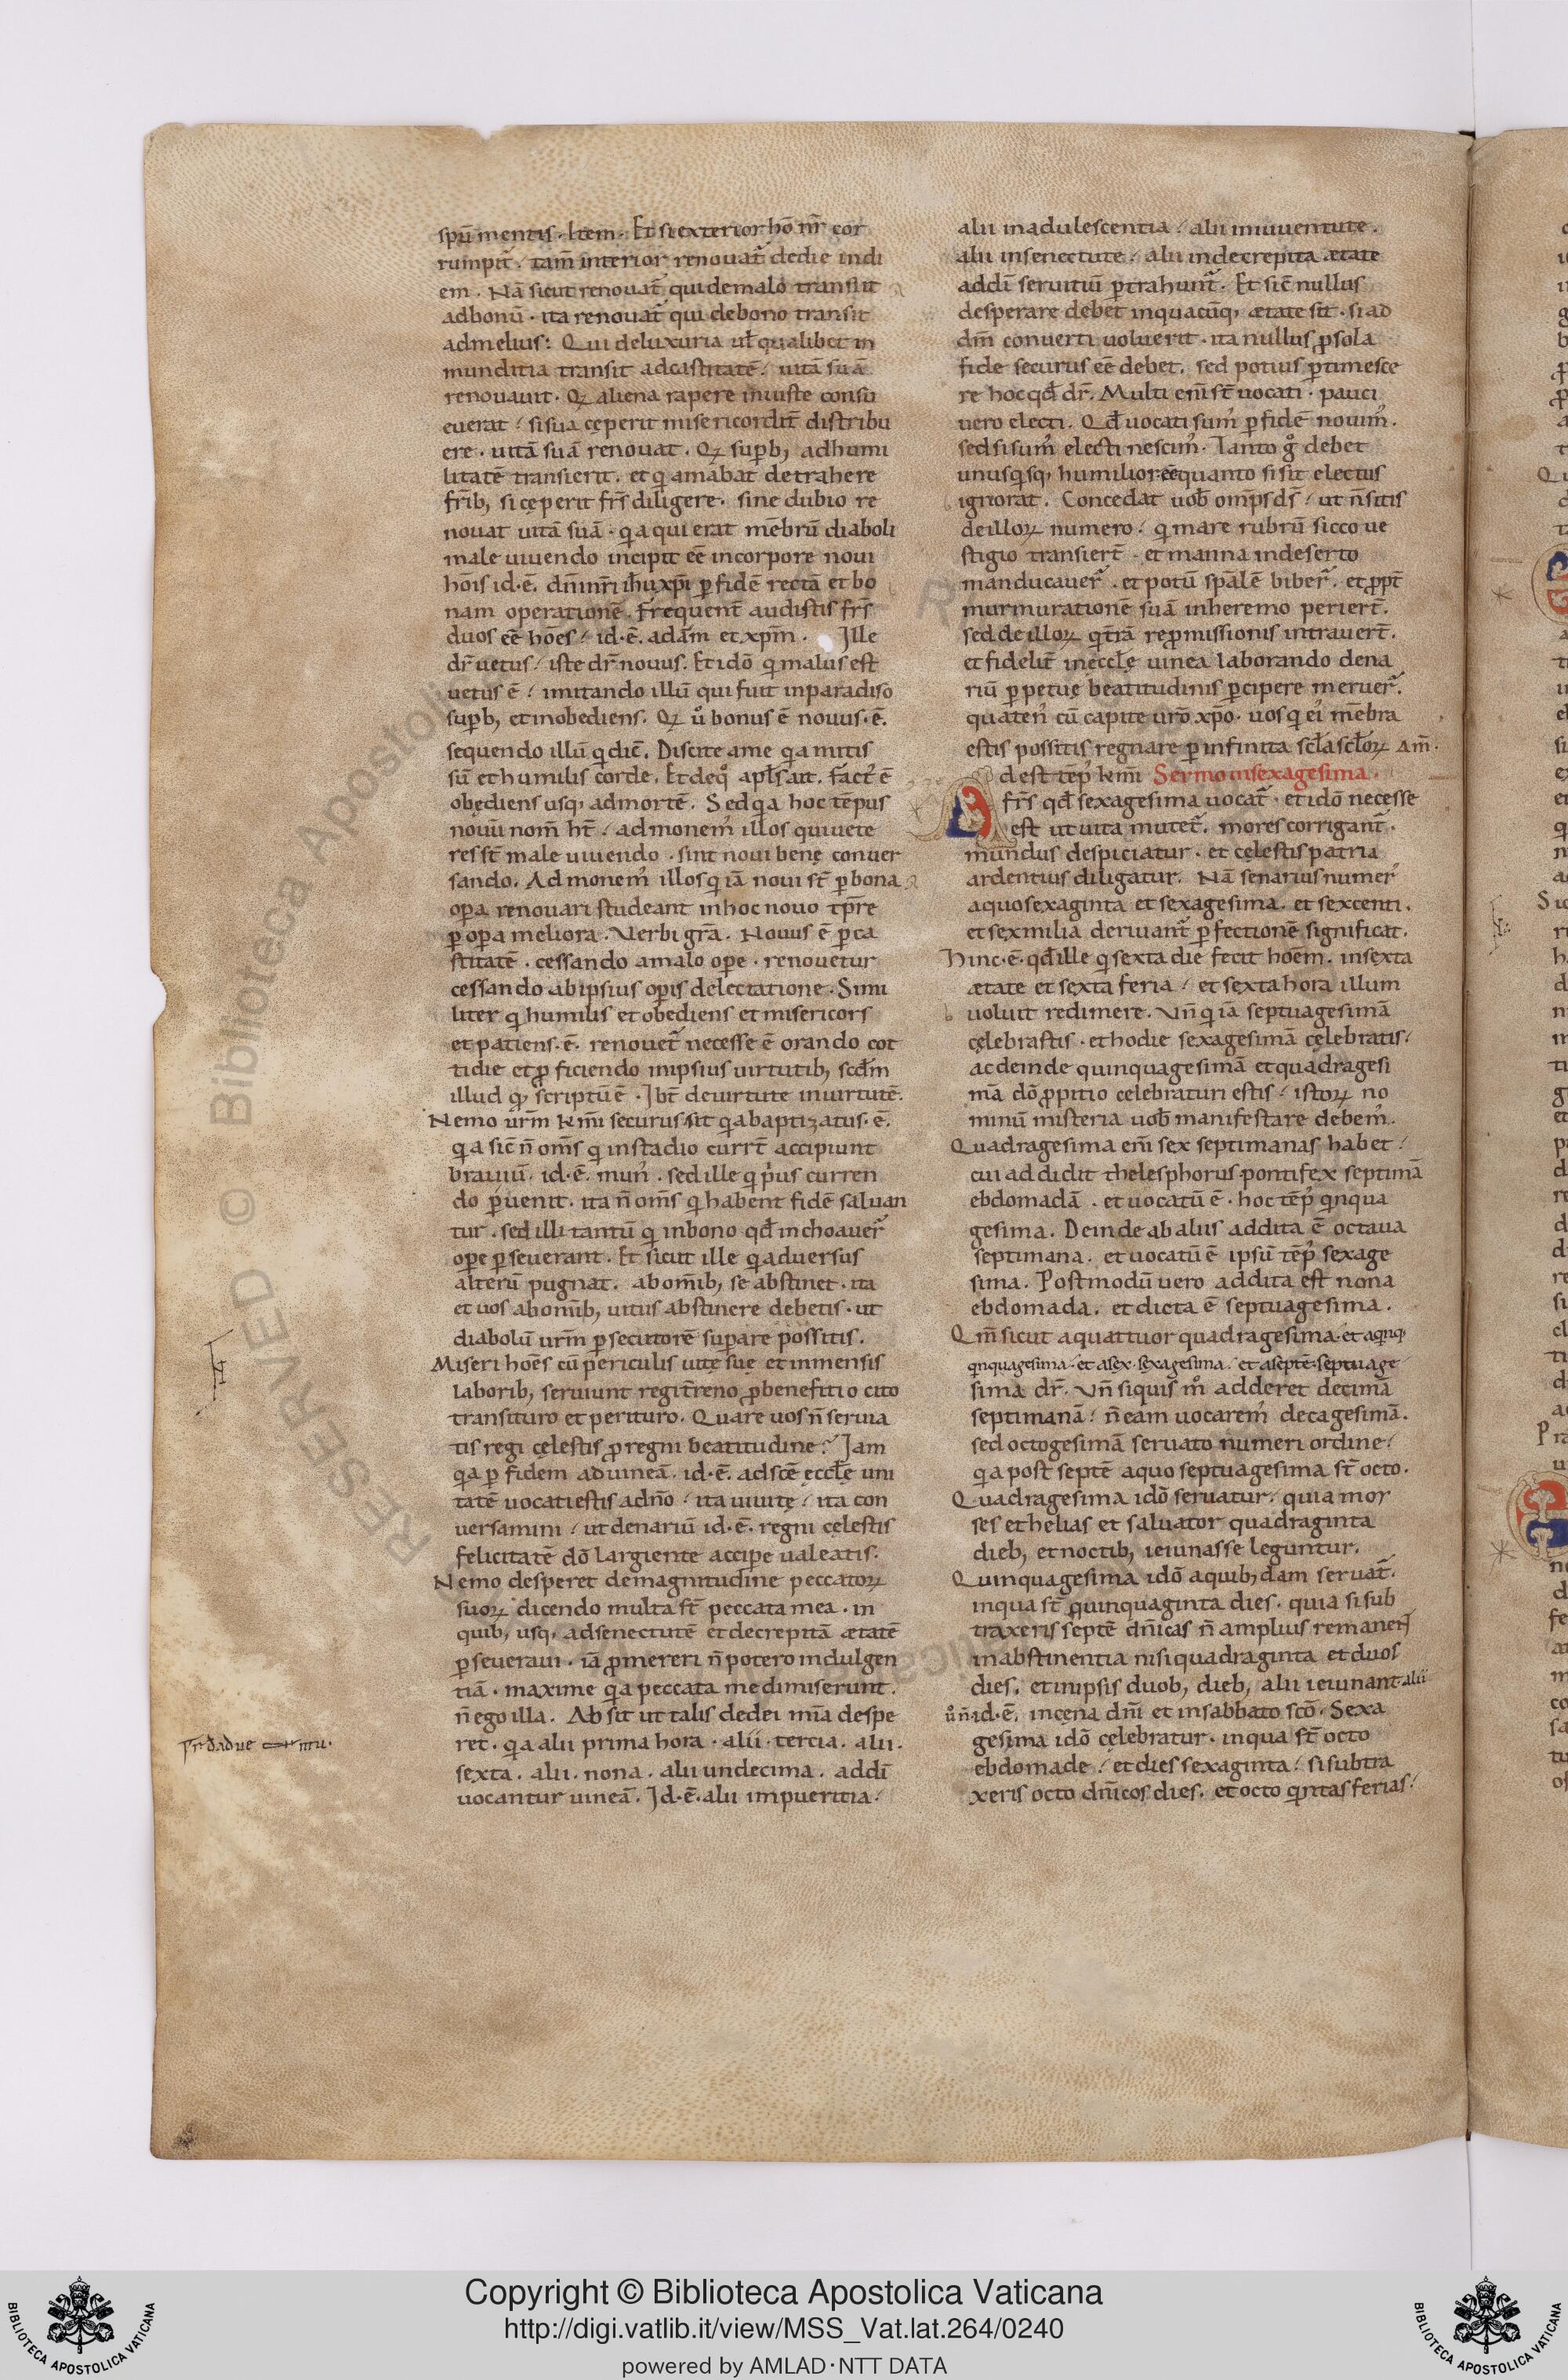 spū mentis. Item. Et si exterior hō nr̄ cor
rumpit̄. tam̄ interior renouat̄ dedie indi
em. Nā sicut renouat̄ qui demalo transiit
adbonū. ita renouat̄ qui debono transit
admelius: Qui deluxuria ul̄ qualibet in
munditia transit adcastitatē. uitā suā
renouauit. Qꝫ aliena rapere iniuste consu
euerat / si sua cęperit misericordit̄ distribu
ere. uitā suā renouat. Qꝫ supb, adhumi
litatē transierit. et q amabat detrahere
frīb, si cęperit frs̄ diligere. sine dubio re
nouat uitā suā. qa qui erat mēbrū diaboli
male uiuendo incipit eē incorpore noui
hōis id.ē. dn̄i nr̄i ihu xp̄i ꝑ fidē rectā et bo
nam operationē. Frequent̄ audistis frs̄
duos eē hoēs / id.ē. adām et xpm̄. Ille
dr̄ uetus / iste dr̄ nouus. Et idō q malus est
uetus ē / imitando illū qui fuit inparadiso
supb, et inobediens. Qꝫ ů bonus ē nouus.ē.
sequendo illū q dic̄. Discite ame qa mitis
sū et humilis corde. Et deq̊ apls̄ ait. fact' ē
obędiens usq, admortē. Sed qa hoc tēpus
nouū nom̄ ht̄ / admonem' illos qui uete
res st̄ male uiuendo. sint noui benę conuer
sando. Admonem' illos q iā noui st̄ ꝑ bona
opa renouari studeant inhoc nouo tp̄re
ꝑ opa meliora. Verbi grā. Nouus ē ꝑ ca
stitatē. cessando amalo ope. renouetur
cessando abipsius opis delectatione. Simi
liter q humilis et obędiens et misericors
et patiens.ē. renouet̄ necesse ē orando cot
tidie et ꝓficiendo inipsius uirtutib, scdm̄
illud q, scriptū ē. Ibt̄ deuirtute inuirtutē.
Nemo ur̄m kmī securus sit qa baptizatus.ē.
qa sic̄ n̄ oms̄ q instadio currt̄ accipiunt
brauiū. id.ē. mun'. sed ille q p'us curren
do ꝑuenit. ita n̄ oms̄ q habent fidē saluan
tur. sed illi tantū q inbono qd̄ inchoauer̄
ope ꝑseuerant. Et sicut ille q aduersus
alterū pugnat. ab omīb, se abstinet. ita
et uos ab omīb, uitiis abstinere debetis. ut
diabolū ur̄m ꝑsecutorē supare possitis.
Miseri hoēs cū periculis uitę suę et inmensis
laborib, seruiunt regi t̄reno ꝓ benefitio cito
transituro et perituro. Quare uos n̄ serui a
tis regi cęlestis ꝓ regni beatitudine? Iam
qa ꝑ fidem ad uineā. id.ē. ad scē ęccl̄ę uni
tatē uocati estis adn̄o / ita uiuitę / ita con
uersamini / ut denariū id.ē. regni cęlestis
felicitatē dō largiente accipe ualeatis.
Nemo desperet demagnitudine peccatoꝝ
suoꝝ dicendo multa st̄ peccata mea. in
quib, usq, adsenectutē et decrepitā ætatē
ꝑseueraui. iā ꝓmereri n̄ potero indulgen
tiā. maxime qa peccata me dimiserunt.
n̄ ego illa. Absit ut talis dedei mīa despe
ret. qa alii prima hora. alii. tercia. alii.
sexta. alii. nona. alii undecima. addī
uocantur uineā. Id.ē. alii impueritia /
alii inadulescentia / alii iniuuentute.
alii insenectute / alii indecrepita ætate
addī seruitiū ꝑtrahunt̄. Et sic̄ nullus
desperare debet inquacūq, ætate sit. si ad
dm̄ conuerti uoluerit. ita nullus ꝓ sola
fide securus eē debet. sed potius ꝑtimesce
re hoc qd̄ dr̄. Multi em̄ st̄ uocati. pauci
uero electi. Qd̄ uocati sum' ꝑ fidē nouim'.
sed si sum' electi nescim'. Tanto g̊ debet
unusqsq, humilior eē quanto si sit electus
ignorat. Concedat uob̄ omps ds̄ / ut n̄ sitis
deilloꝝ numero / q mare rubrū sicco ue
stigio transiert̄. et manna indeserto
manducauer̄. et potū spālē biber̄. et ꝓpt̄
murmurationē suā inheremo periert̄.
sed deilloꝝ q t̄rā repromissionis intrauert̄.
et fidelit̄ ineccl̄ę uinea laborando dena
riū ꝑpetuę beatitudinis ꝑcipere meruer̄.
quaten' cū capite urō xp̄o. uos q ei' mēbra
estis possitis regnare ꝑ infinita scl̄a scl̄oꝝ am̄.
dest tēp' kmī Sermo insexagesima.
frs̄ qd̄ sexagesima uocat̄. et idō necesse
est ut uita mutet̄. mores corrigant̄.
mundus despiciatur. et cęlestis patria
ardentius diligatur. Nā senarius numer'
aquo sexaginta et sexagesima. et sexcenti.
et sex milia deriuant̄ ꝑfectionē significat.
Hinc.ē. qd̄ ille q sexta die fecit hoēm. insexta
ætate et sexta feria / et sexta hora illum
uoluit redimere. Vn̄ q iā septuagesimā
cęlebrastis. et hodie sexagesimā cęlebratis /
ac deinde quinquagesimā et quadragesi
mā dō ꝓpitio celebraturi estis / istoꝝ no
minū misteria uob̄ manifestare debem'.
Quadragesima em̄ sex septimanas habet /
cui addidit thelesphorus pontifex septimā
ebdomadā. et uocatū ē. hoc tēp' qnqua
gesima. Deinde ab aliis addita ē octaua
septimana. et uocatū ē ipsū tēp' sexage
sima. Postmodū uero addita est nona
ebdomada. et dicta ē septuagesima.
Qm̄ sicut aquattuor quadragesima. et aqnq,
qnquagesima. et asex. sexagesima. et aseptē. septuage
sima dr̄. Vn̄ siquis m̊ adderet decimā
septimanā / n̄ eam uocarem' decagesimā.
sed octogesimā seruato numeri ordine /
qa post septē aquo septuagesima st̄ octo.
Quadragesima idō seruatur / quia moy
ses et helias et saluator quadraginta
dieb, et noctib, ieiunasse leguntur.
Quinquagesima idō aquib,dam seruat̄.
inqua st̄ quinquaginta dies. quia si sub
traxeris septē dn̄icas n̄ amplius remanet
inabstinentia nisi quadraginta et duos
dies. et inipsis duob, dieb, alii ieiunant alii
ů n̄ id.ē. incęna dn̄i et insabbato scō. Sexa
gesima idō cęlebratur. inqua st̄ octo
ebdomade / et dies sexaginta / si subtra
xeris octo dn̄icos dies. et octo qntas ferias /
Copyright © Biblioteca Apostolica Vaticana
http://digi.vatlib.it/view/MSS_Vat.lat.264/0240
powered by AMLAD·NTT DATA
BIBLIOTECA APOSTOLICA VATICANA
BIBLIOTECA APOSTOLICA VATICANA